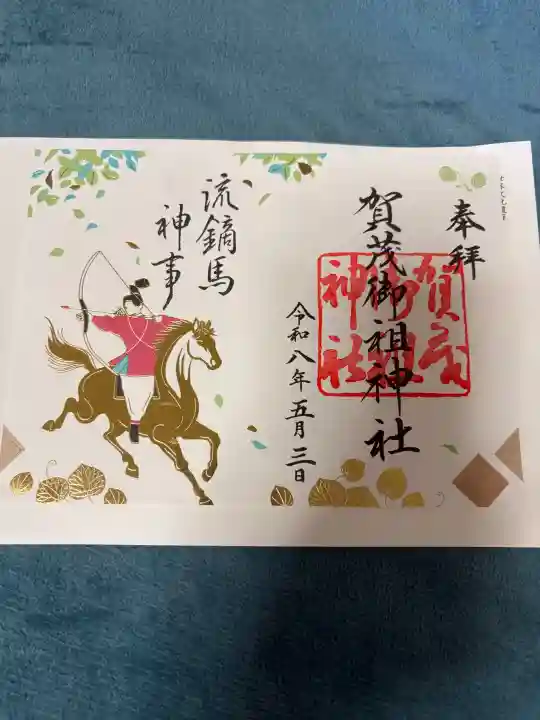 奉拝
賀茂御祖神社
賀茂御祖神社
令和八年五月三日
流鏑馬
神事